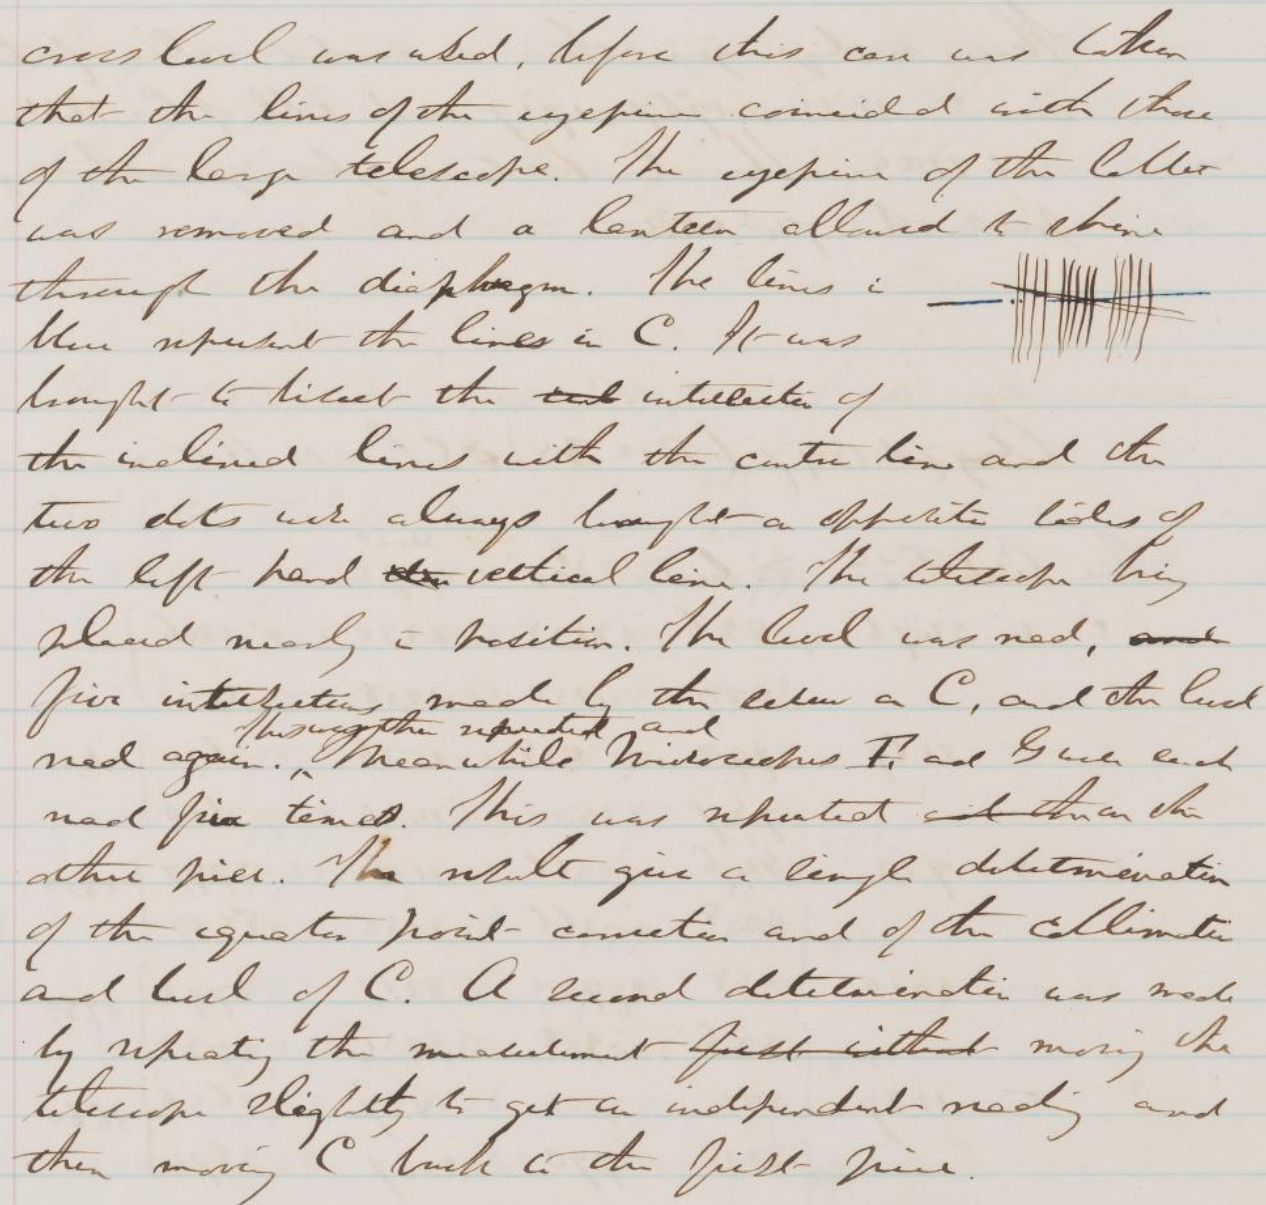 cross level was used, before this care was taken
that the lines of the eyepiece coincided with those
of the large telescope. The eyepiece of the latter
was removed and a lantern allowed to shine
through the diaphragm. The lines in
blue represent the lines in C. It was
brought to bisect the intersection of
the inclined lines with the centre line and the
two dots were always brought on opposite sides of
the left hand vertical line. The telescope being
placed nearly in position. The level was read, and
five intersections made by the screw on C, and the level
This was then repeated and
read again. Meanwhile Microscopes F. and G were each
read five times. This was repeated on the
other pier. The result give a single determination
of the equator point correction and of the collimation
and level of C. A second determination was made
by repeating the measurement first without moving the
telescope slightly to get an independent reading and
then moving C back to the first pier.